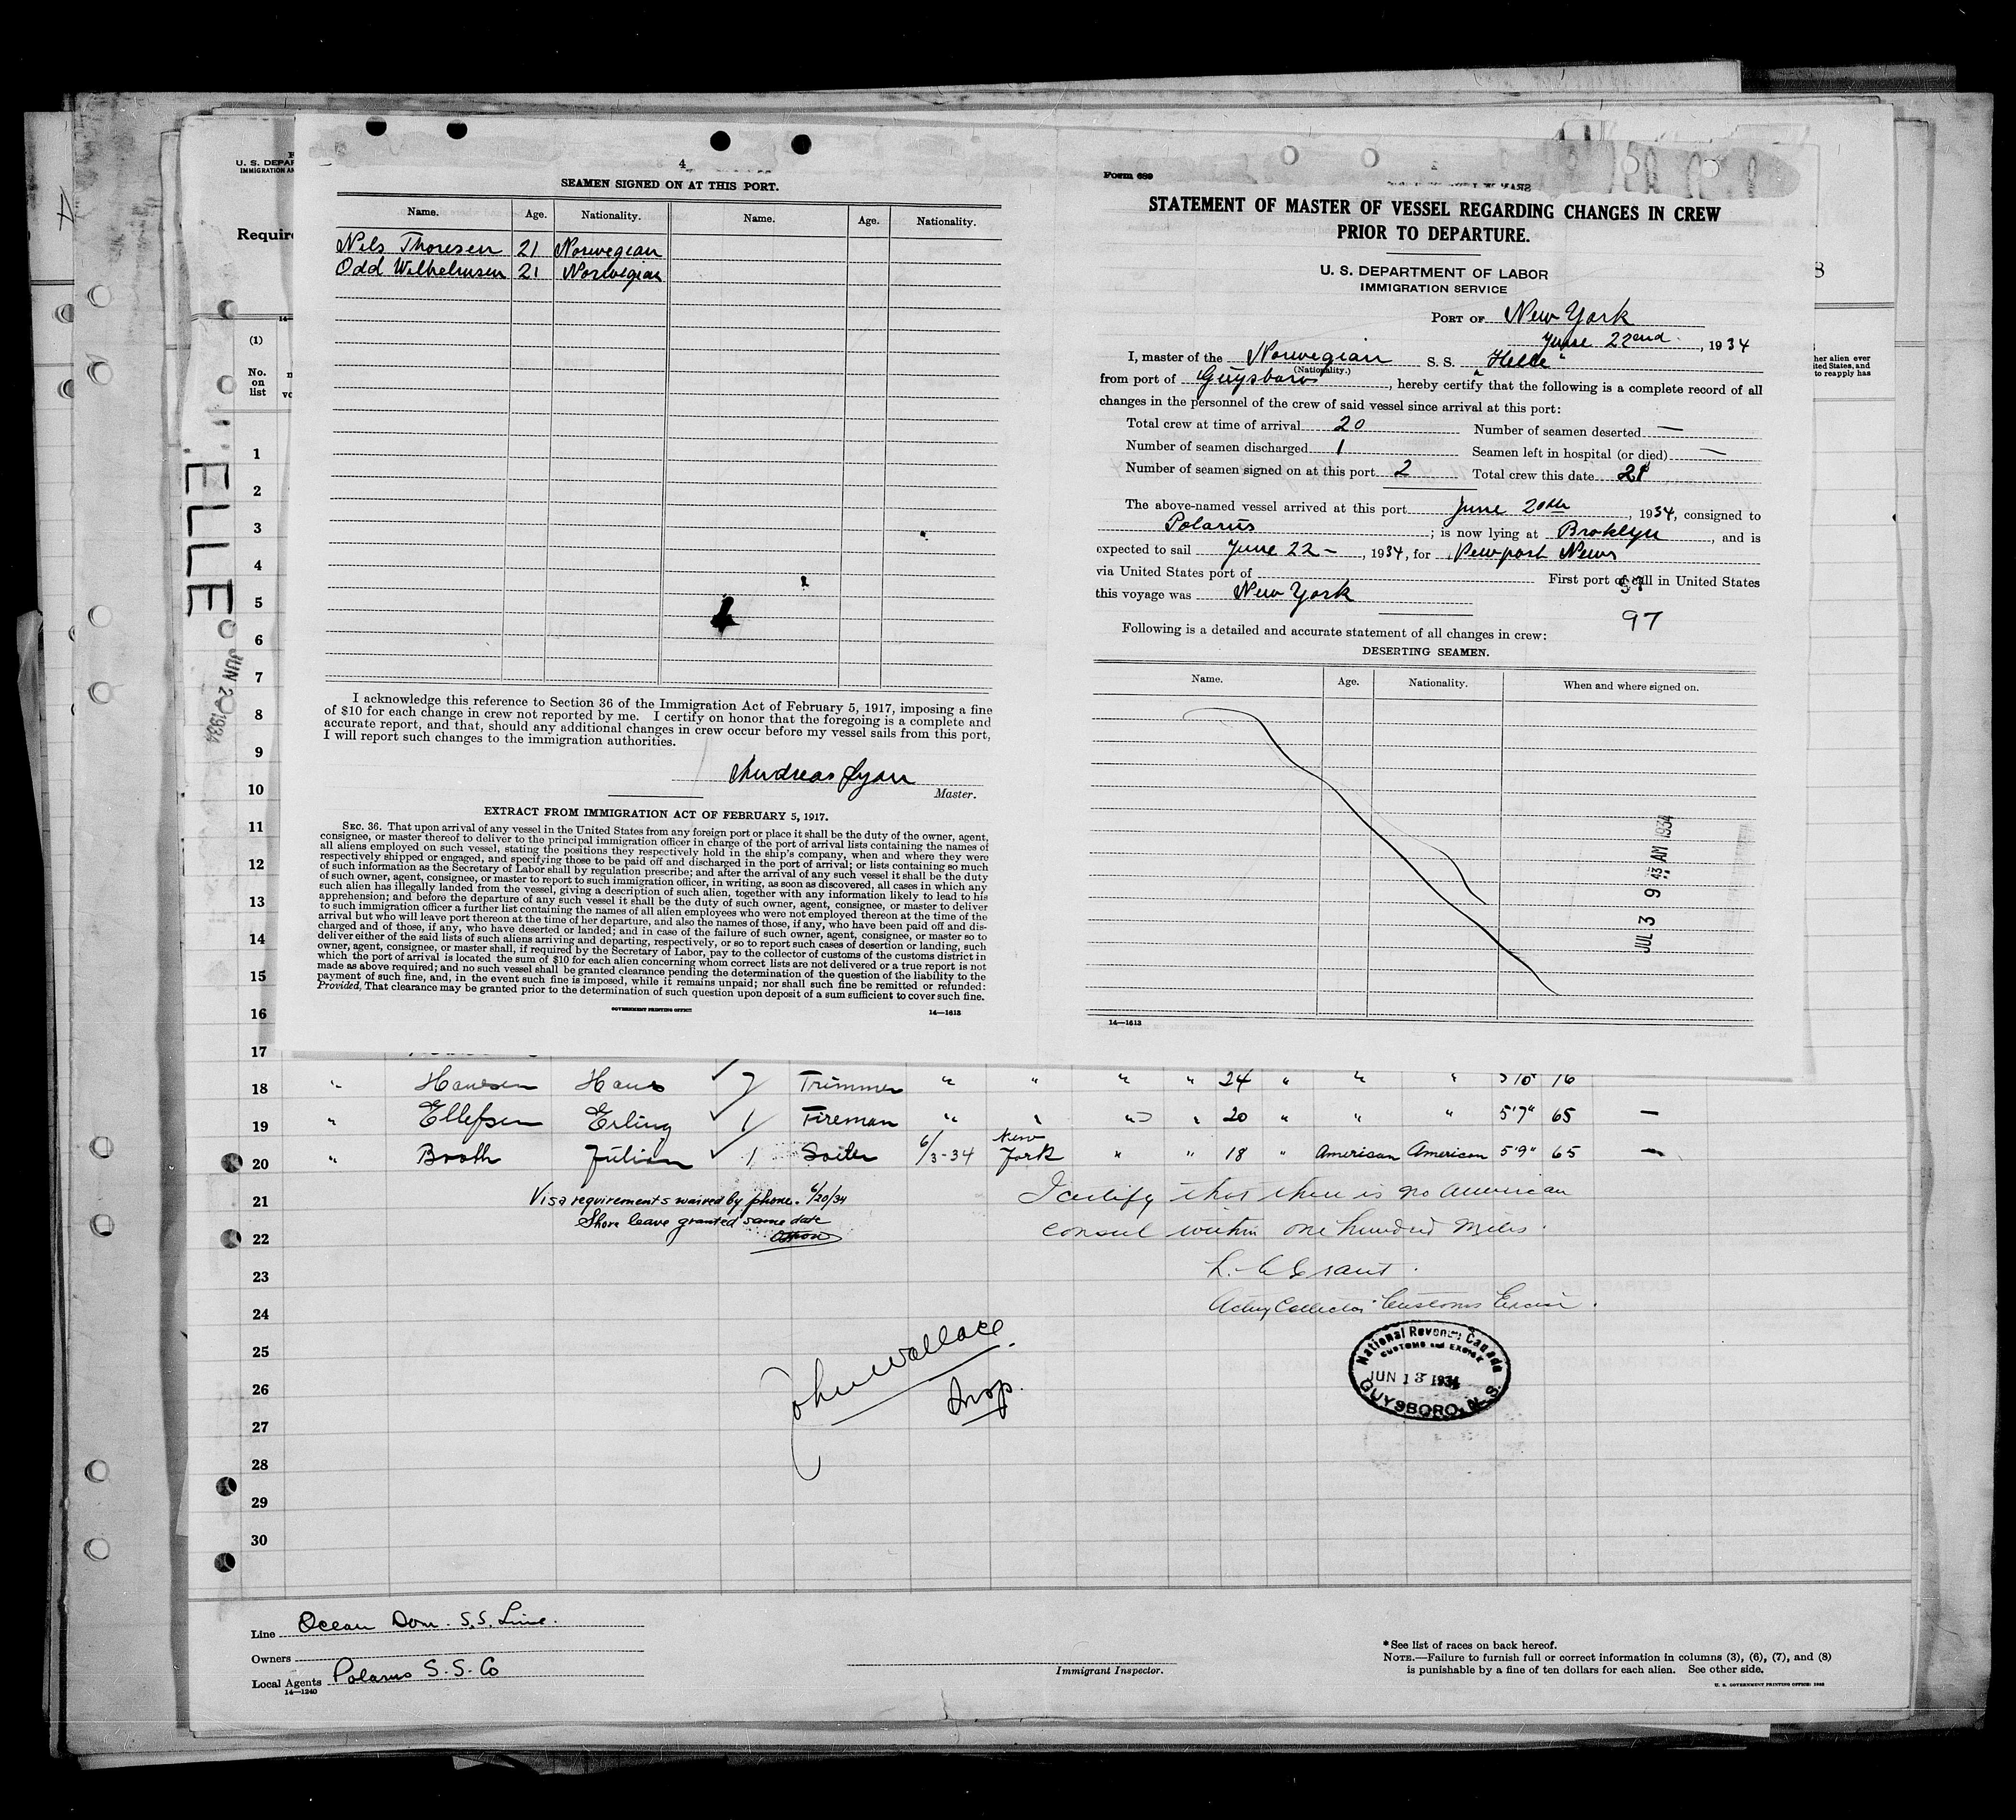 4
SEAMEN SIGNED ON AT THIS PORT.
Name. Age. Nationality. Name. Age. Nationality.
Nils Thoresen 21 Norwegian
Odd Wilhelmsen 21 Norwegian
I acknowledge this reference to Section 36 of the Immigration Act of February 5, 1917, imposing a fine
of $10 for each change in crew not reported by me. I certify on honor that the foregoing is a complete and
accurate report, and that, should any additional changes in crew occur before my vessel sails from this port,
I will report such changes to the immigration authorities.
Andreas
Master.
EXTRACT FROM IMMIGRATION ACT OF FEBRUARY 5, 1917.
SEC. 36. That upon arrival of any vessel in the United States from any foreign port or place it shall be the duty of the owner, agent,
consignee, or master thereof to deliver to the principal immigration officer in charge of the port of arrival lists containing the names of
all aliens employed on such vessel, stating the positions they respectively hold in the ship's company, when and where they were
respectively shipped or engaged, and specifying those to be paid off and discharged in the port of arrival; or lists containing so much
of such information as the Secretary of Labor shall by regulation prescribe; and after the arrival of any such vessel it shall be the duty
of such owner, agent, consignee, or master to report to such immigration officer, in writing, as soon as discovered, all cases in which any
such alien has illegally landed from the vessel, giving a description of such alien, together with any information likely to lead to his
apprehension; and before the departure of any such vessel it shall be the duty of such owner, agent, consignee, or master to deliver
to such immigration officer a further list containing the names of all alien employees who were not employed thereon at the time of the
arrival but who will leave port thereon at the time of her departure, and also the names of those, if any, who have been paid off and dis-
charged and of those, if any, who have deserted or landed; and in case of the failure of such owner, agent, consignee, or master so to
deliver either of the said lists of such aliens arriving and departing, respectively, or so to report such cases of desertion or landing, such
owner, agent, consignee, or master shall, if required by the Secretary of Labor, pay to the collector of customs of the customs district in
which the port of arrival is located the sum of $10 for each alien concerning whom correct lists are not delivered or a true report is not
made as above required; and no such vessel shall be granted clearance pending the determination of the question of the liability to the
payment of such fine, and, in the event such fine is imposed, while it remains unpaid; nor shall such fine be remitted or refunded:
Provided, That clearance may be granted prior to the determination of such question upon deposit of a sum sufficient to cover such fine.
GOVERNMENT PRINTING OFFICE 14—1613
Form 689
STATEMENT OF MASTER OF VESSEL REGARDING CHANGES IN CREW
PRIOR TO DEPARTURE.
U. S. DEPARTMENT OF LABOR
IMMIGRATION SERVICE
PORT OF New York
June 22nd, 1934
I, master of the Norwegian S. S. "Helle"
(Nationality.)
from port of Guysboro, hereby certify that the following is a complete record of all
changes in the personnel of the crew of said vessel since arrival at this port:
Total crew at time of arrival 20 Number of seamen deserted —
Number of seamen discharged 1 Seamen left in hospital (or died) —
Number of seamen signed on at this port 2 Total crew this date 21
The above-named vessel arrived at this port June 20th, 1934, consigned to
Polarus; is now lying at Broklyn, and is
expected to sail June 22 -, 1934, for Newport News
via United States port of First port of call in United States
this voyage was New York
97
Following is a detailed and accurate statement of all changes in crew:
DESERTING SEAMEN.
Name. Age. Nationality. When and where signed on.
JUL 3 9 43 AM 1934
14—1613
U. S. DEPAR
IMMIGRATION AN
Require
(1)
No.
on
list
8
her alien ever
ited States, and
to reapply has
ELLE
JUN 20 1934
1
2
3
4
5
6
7
8
9
10
11
12
13
14
15
16
17
18 " Hansen Hans 7 Trimmer " " " " 24 " " " 5'10" 16
19 " Ellefsen Erling 1 Fireman " " " " 20 " " " 5'7" 65 —
20 " Booth Julien 1 Sailer 6/3-34 New York " " 18 " American American 5'9" 65 —
21 Visa requirements waived by phone. 6/20/34
Shore leave granted same date
I certify that there is no American
22 consul within one hundred miles.
23
L. Grant.
24 Acting Collector Customs Excise.
John Wallace
Insp.
National Revenue Canada
CUSTOMS and EXCISE
JUN 13 1934
GUYSBORO, N. S.
25
26
27
28
29
30
Line Ocean Dom. S.S. Line.
Owners
Local Agents Polarus S. S. Co
14—1240
Immigrant Inspector.
*See list of races on back hereof.
NOTE.—Failure to furnish full or correct information in columns (3), (6), (7), and (8)
is punishable by a fine of ten dollars for each alien. See other side.